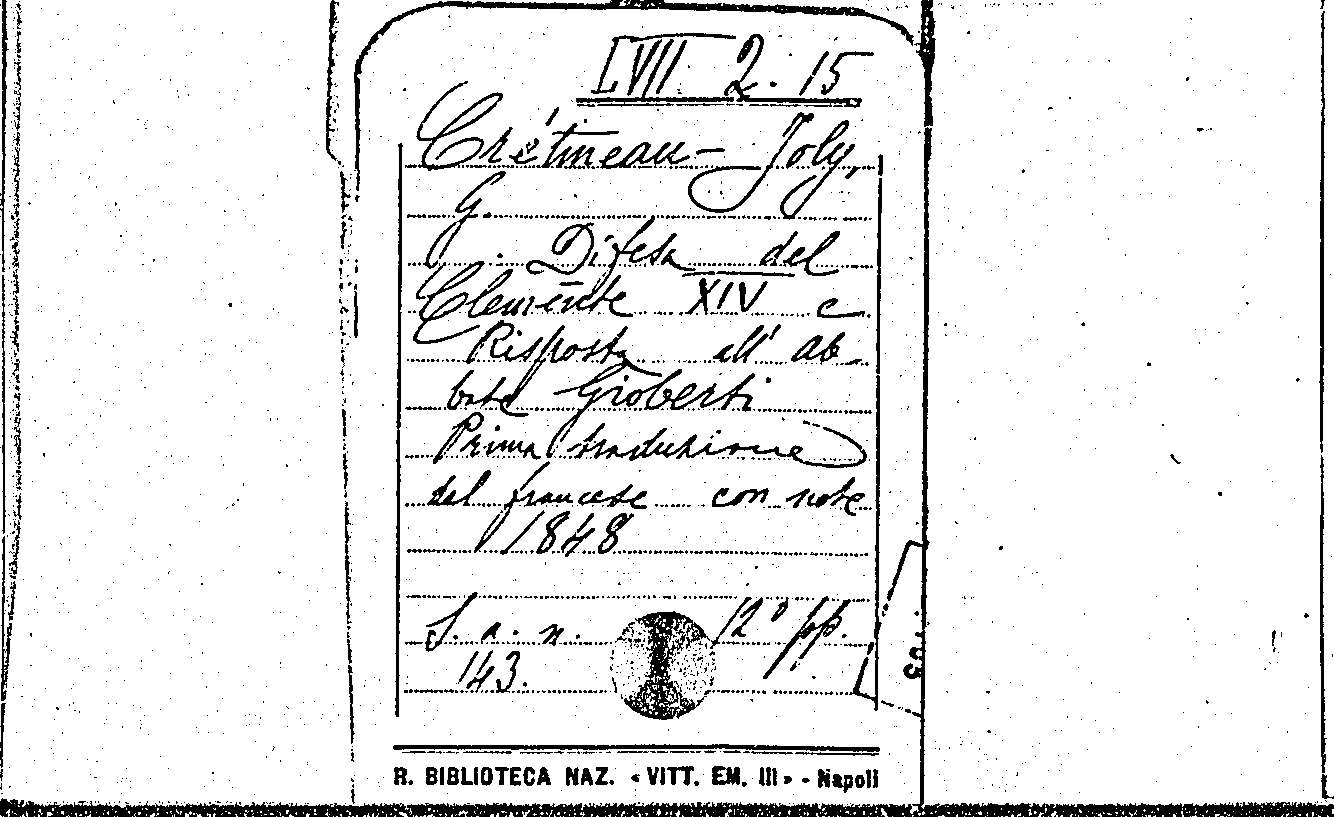 LVII 2. 15
Crétineau- Joly,
G.
Difesa del
Clemente XIV e
Risposta all' ab-
bate Gioberti
Prima traduzione
dal francese con note
1848
S. a. n. 12º pp.
143.
R. BIBLIOTECA NAZ. «VITT. EM. III» - Napoli